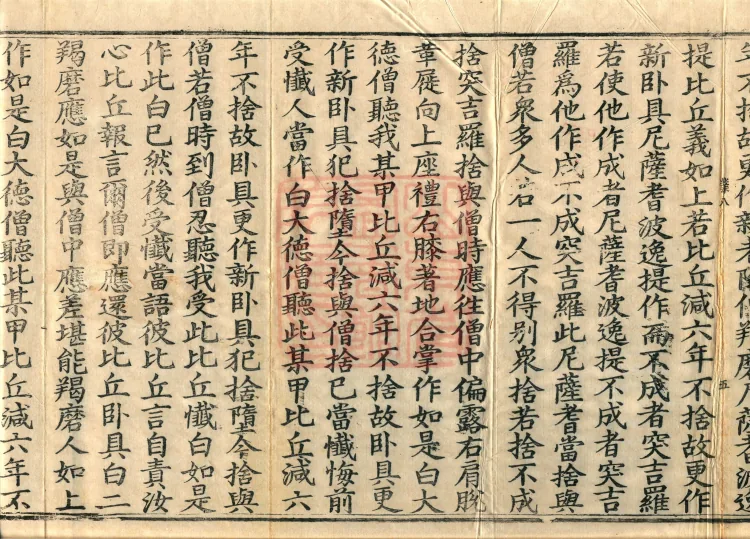 年不捨故更作新者除僧羯磨尼薩耆波逸
五
提比丘義如上若比丘減六年不捨故更作
新卧具尼薩耆波逸提作而不成者突吉羅
若使他作成者尼薩耆波逸提不成者突吉
羅為他作成不成突吉羅此尼薩耆當捨與
僧若衆多人若一人不得別衆捨若捨不成
捨突吉羅捨與僧時應往僧中偏露右肩脫
革屣向上座禮右膝著地合掌作如是白大
德僧聽我某甲比丘減六年不捨故卧具更
作新卧具犯捨墮今捨與僧捨已當懺悔前
受懺人當作白大德僧聽此某甲比丘減六
年不捨故卧具更作新卧具犯捨墮今捨與
僧若僧時到僧忍聽我受此比丘懺白如是
作此白已然後受懺當語彼比丘言自責汝
心比丘報言爾僧即應還彼比丘卧具白二
羯磨應如是與僧中應差堪能羯磨人如上
作如是白大德僧聽此某甲比丘減六年不